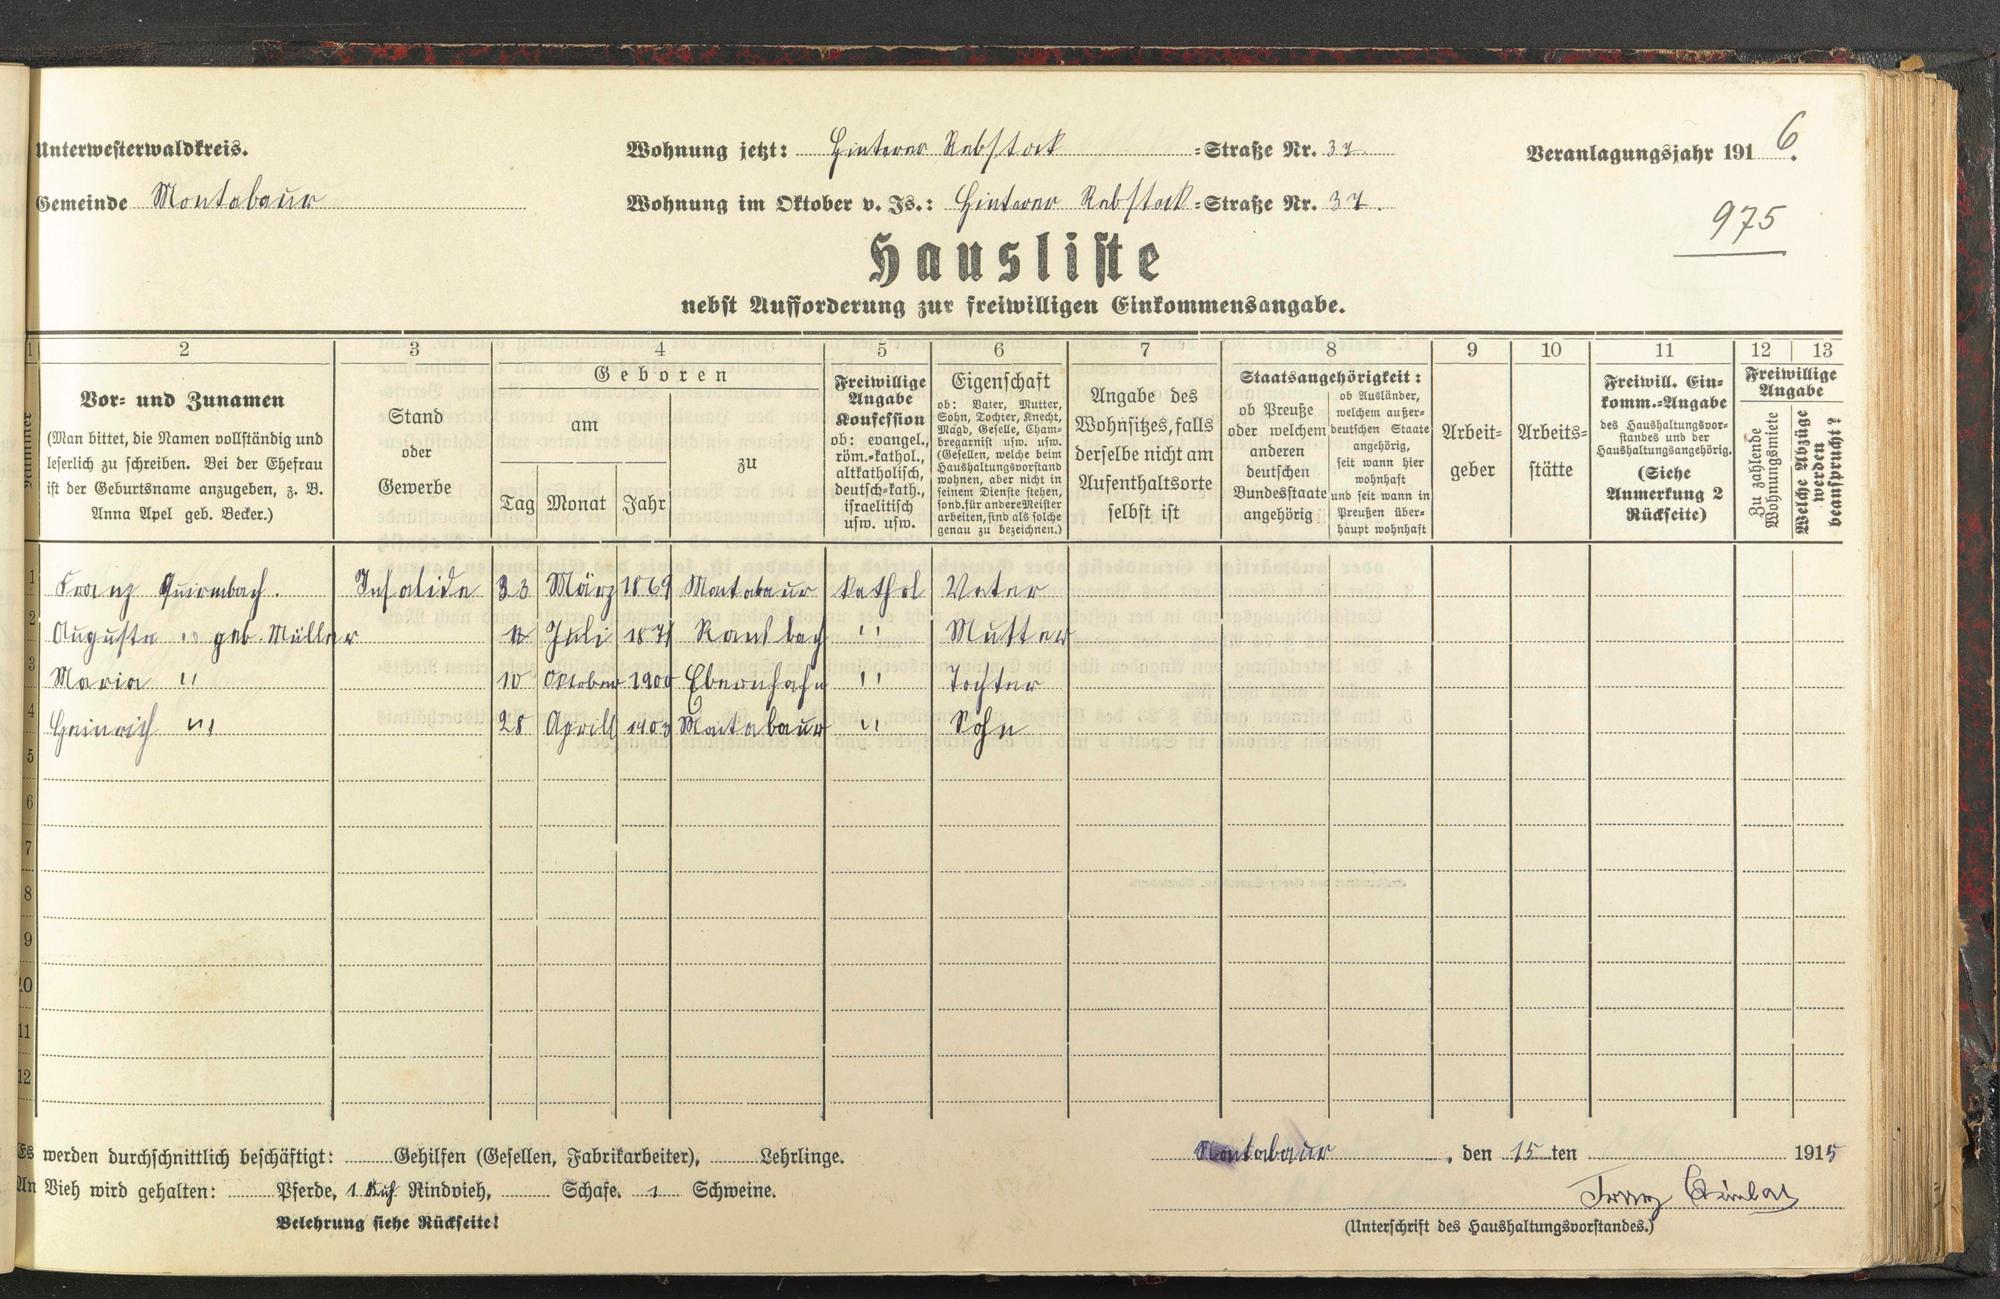 Unterwesterwaldkreis.
Wohnung jetzt: Hinterer Rebstock =Straße Nr. 37
Veranlagungsjahr 1916.
Gemeinde Montabaur
Wohnung im Oktober v. Js.: Hinterer Rebstock =Straße Nr. 37.
975
Hausliste
nebst Aufforderung zur freiwilligen Einkommensangabe.
1 2 3 4 5 6 7 8 9 10 11 12 13
Nummer
Vor- und Zunamen
(Man bittet, die Namen vollständig und
leserlich zu schreiben. Bei der Ehefrau
ist der Geburtsname anzugeben, z. B.
Anna Apel geb. Becker.)
Stand
oder
Gewerbe
Geboren
am
Tag Monat Jahr
zu
Freiwillige
Angabe
Konfession
ob: evangel.,
röm.-kathol.,
altkatholisch,
deutsch-kath.,
israelitisch
usw. usw.
Eigenschaft
ob: Vater, Mutter,
Sohn, Tochter, Knecht,
Magd, Geselle, Cham-
bregarnist usw. usw.
(Gesellen, welche beim
Haushaltungsvorstand
wohnen, aber nicht in
seinem Dienste stehen,
sond. für andere Meister
arbeiten, sind als solche
genau zu bezeichnen.)
Angabe des
Wohnsitzes, falls
derselbe nicht am
Aufenthaltsorte
selbst ist
Staatsangehörigkeit:
ob Preuße
oder welchem
anderen
deutschen
Bundesstaate
angehörig
ob Ausländer,
welchem außer-
deutschen Staate
angehörig,
seit wann hier
wohnhaft
und seit wann in
Preußen über-
haupt wohnhaft
Arbeit-
geber
Arbeits-
stätte
Freiwill. Ein-
komm.-Angabe
des Haushaltungsvor-
standes und der
Haushaltungsangehörig.
(Siehe
Anmerkung 2
Rückseite)
Freiwillige
Angabe
Zu zahlende
Wohnungsmiete
Welche Abzüge
werden
beansprucht?
1 Franz Quirmbach. Infalide 23 März 1869 Montabaur kathol Vater
2 Augusta " geb. Müller Juli Ransbach " Mutter
3 Maria " 10 Oktober 1900 Ebernhahn " Tochter
4 Heinrich " 28 Aprill 1903 Montabaur " Sohn
5
6
7
8
9
10
11
12
Es werden durchschnittlich beschäftigt: Gehilfen (Gesellen, Fabrikarbeiter), Lehrlinge.
Montabaur, den 15ten 1915
An Vieh wird gehalten: Pferde, 1 Kuh Rindvieh, Schafe. 1 Schweine.
Franz
Belehrung siehe Rückseite!
(Unterschrift des Haushaltungsvorstandes.)